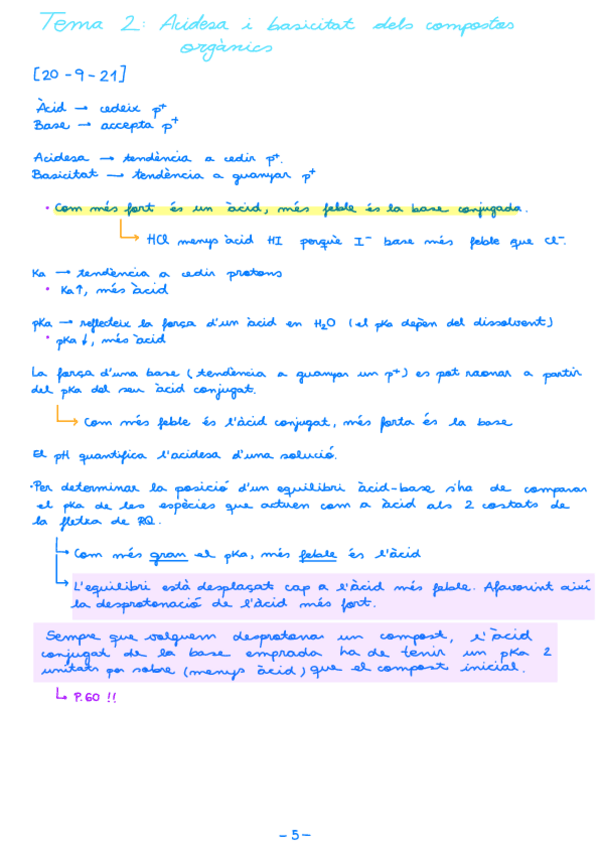 Tema 2: Acidesa i basicitat dels compostos
orgànics
[20-9-21]
Àcid → cedeix p⁺
Base → accepta p⁺
Acidesa → tendència a cedir p⁺.
Basicitat → tendència a guanyar p⁺
• Com més fort és un àcid, més feble és la base conjugada.
↳ HCl menys àcid HI perquè I⁻ base més feble que Cl⁻.
Ka → tendència a cedir protons
• Ka↑, més àcid
pKa → reflecteix la força d'un àcid en H₂O (el pKa depèn del dissolvent)
• pKa↓, més àcid
La força d'una base (tendència a guanyar un p⁺) es pot raonar a partir
del pKa del seu àcid conjugat.
↳ Com més feble és l'àcid conjugat, més forta és la base
El pH quantifica l'acidesa d'una solució.
• Per determinar la posició d'un equilibri àcid-base s'ha de comparar
el pKa de les espècies que actuen com a àcid als 2 costats de
la fletxa de RQ.
↳ Com més gran el pKa, més feble és l'àcid
↳ L'equilibri està desplaçat cap a l'àcid més feble. Afavorint així
la desprotonació de l'àcid més fort.
Sempre que volguem desprotonar un compost, l'àcid
conjugat de la base emprada ha de tenir un pKa 2
unitats per sobre (menys àcid) que el compost inicial.
↳ P.60 !!
-5-